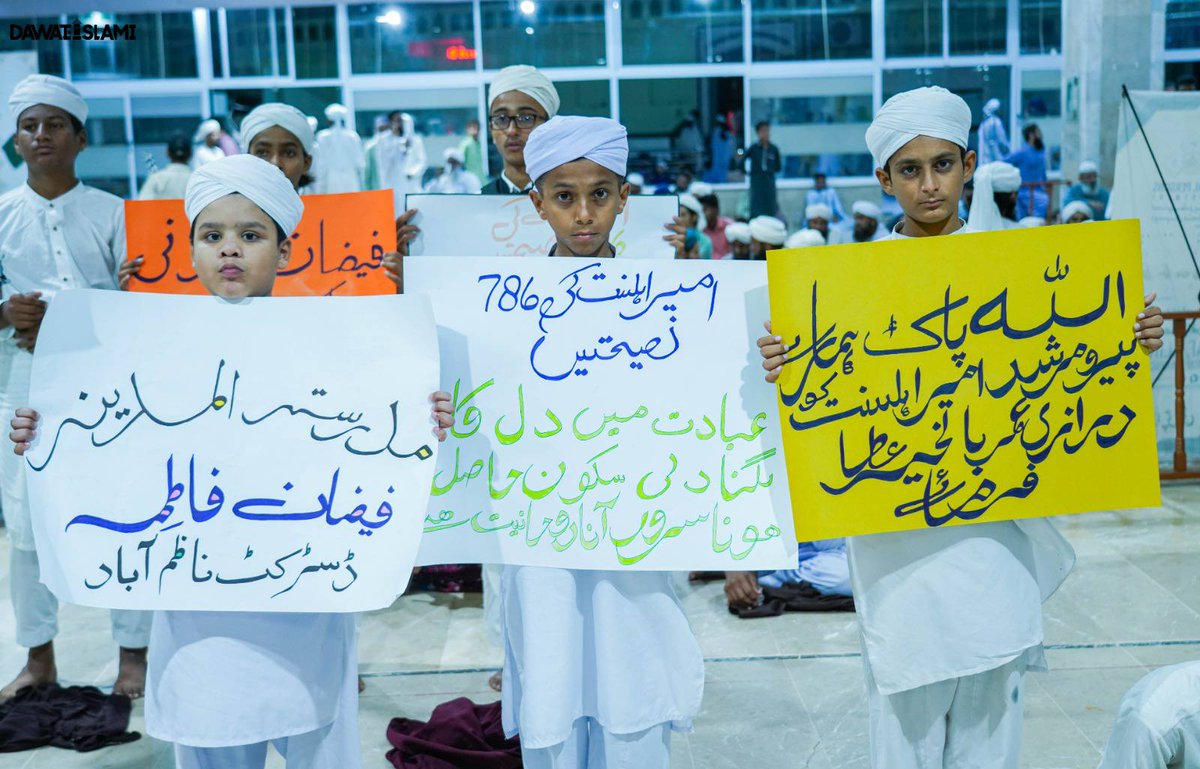 DAWATEISLAMI
فیضان
مدرستہ المدینہ
فیضان فاطمہ
ڈسٹرکٹ ناظم آباد
امیر اہلسنت کی 786
نصیحتیں
عبادت میں دل کا
لگنا دلی سکون حاصل
ہونا سرور آنا روحانیت ہے
اللہ پاک ہمارے
پیر و مرشد امیر اہلسنت کو
درازی عمر بالخیر عطا
فرمائے